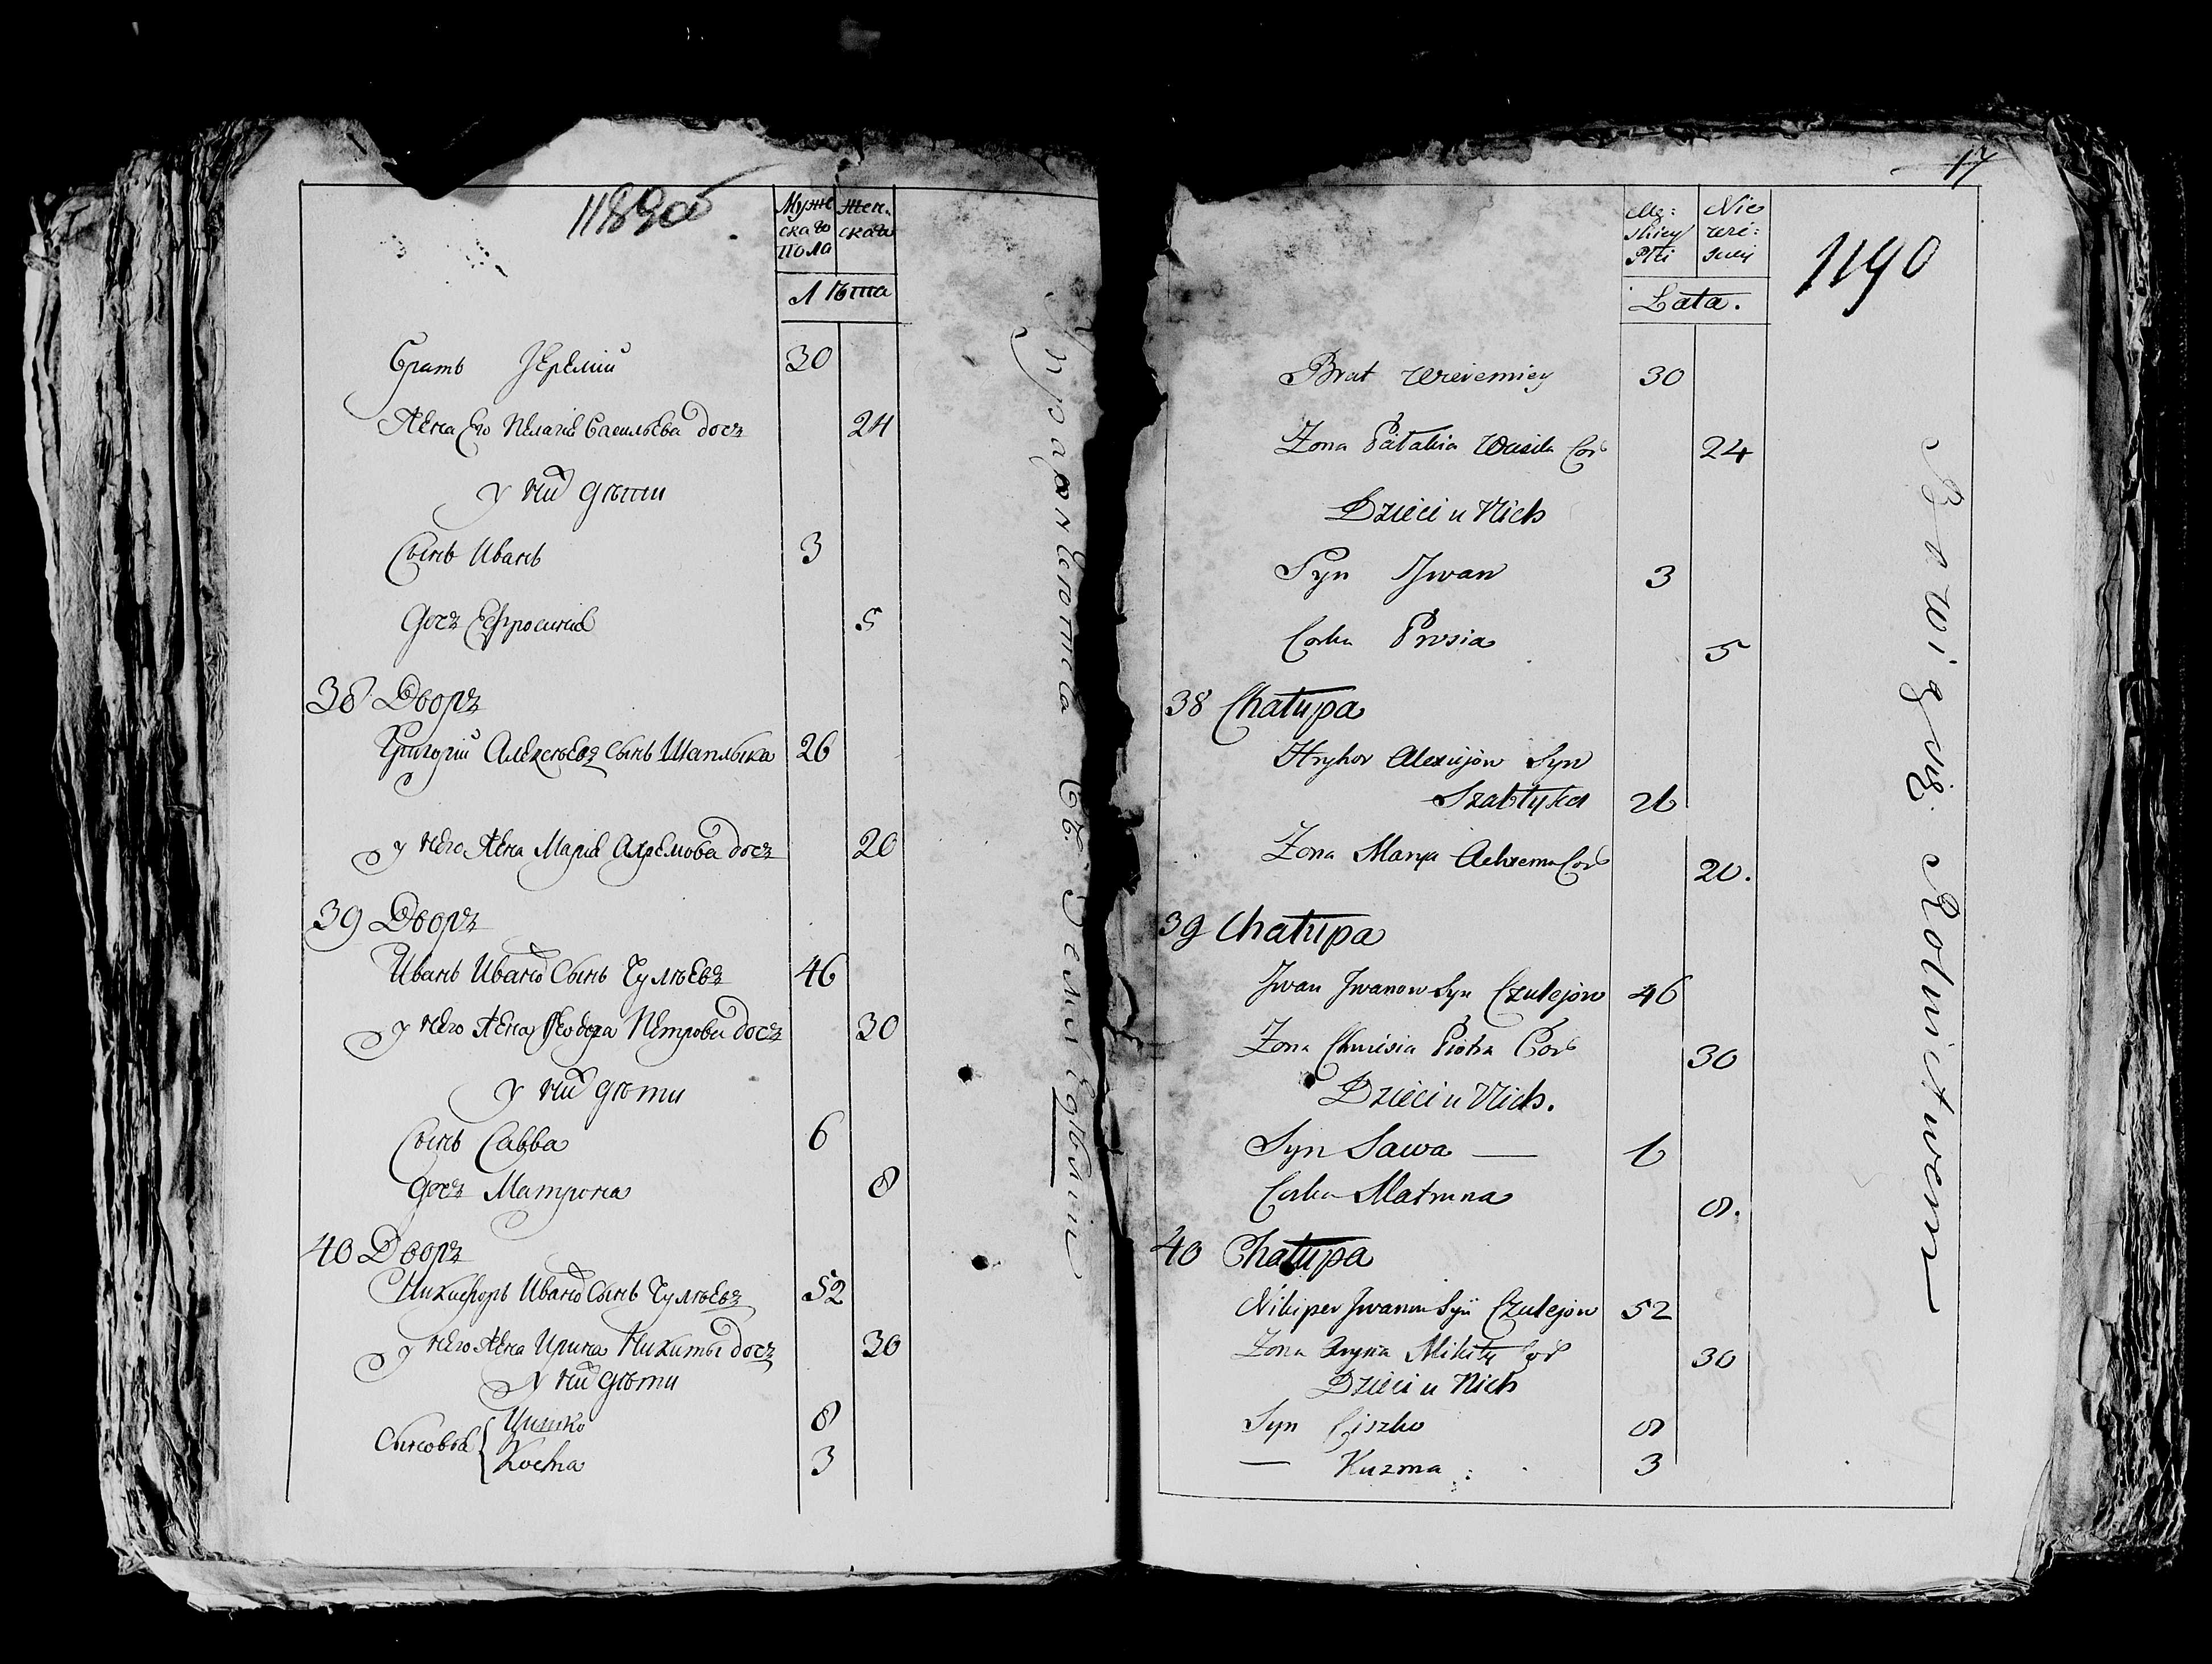 1189об
Муже
скаго
пола
Жен.
скаго
Лѣта
Братъ Иеремий 30
Жена Его Пелагия Васильева дочь 24
у них дѣти
Сынъ Иванъ 3
дочь Ефросиния 5
38 Дворъ
Григорий Алексѣевъ сынъ Шаплыка 26
у него жена Мария Ахремова дочь 20
39 Дворъ
Иванъ Иванов Сынъ Чулѣевъ 46
у него жена Феодора Петрова дочь 30
у них дѣти
Сынъ Савва 6
дочь Матрона 8
40 Дворъ
Никифоръ Иванов Сынъ Чулѣевъ 52
у него жена Ирина Никиты дочь 30
у них дѣти
Сыновья Цишко 8
Косма 3
17
1190
Męz:
skiey
Płci
Nie
wie:
sciey
Lata.
Brat Wieremiey 30
Zona Pałahia Wasila Cor 24
Dzieci u Nich
Syn Jwan 3
Corka Prosia 5
38 Chałupa
Hryhor Alexiejow Syn
Szabłyka 26
Zona Marya Achrema Cor 20.
39 Chałupa
Jwan Jwanow Syn Czulejow 46
Zona Chwiesia Piotra Cor 30
Dzieci u Nich.
Syn Sawa — 6
Corka Matruna 8.
40 Chałupa
Nikiper Jwanow Syn Czulejow 52
Zona Aryna Mikity Cor 30
Dzieci u Nich
Syn Ciszko 8
— Kuzma 3
Rolnictwem